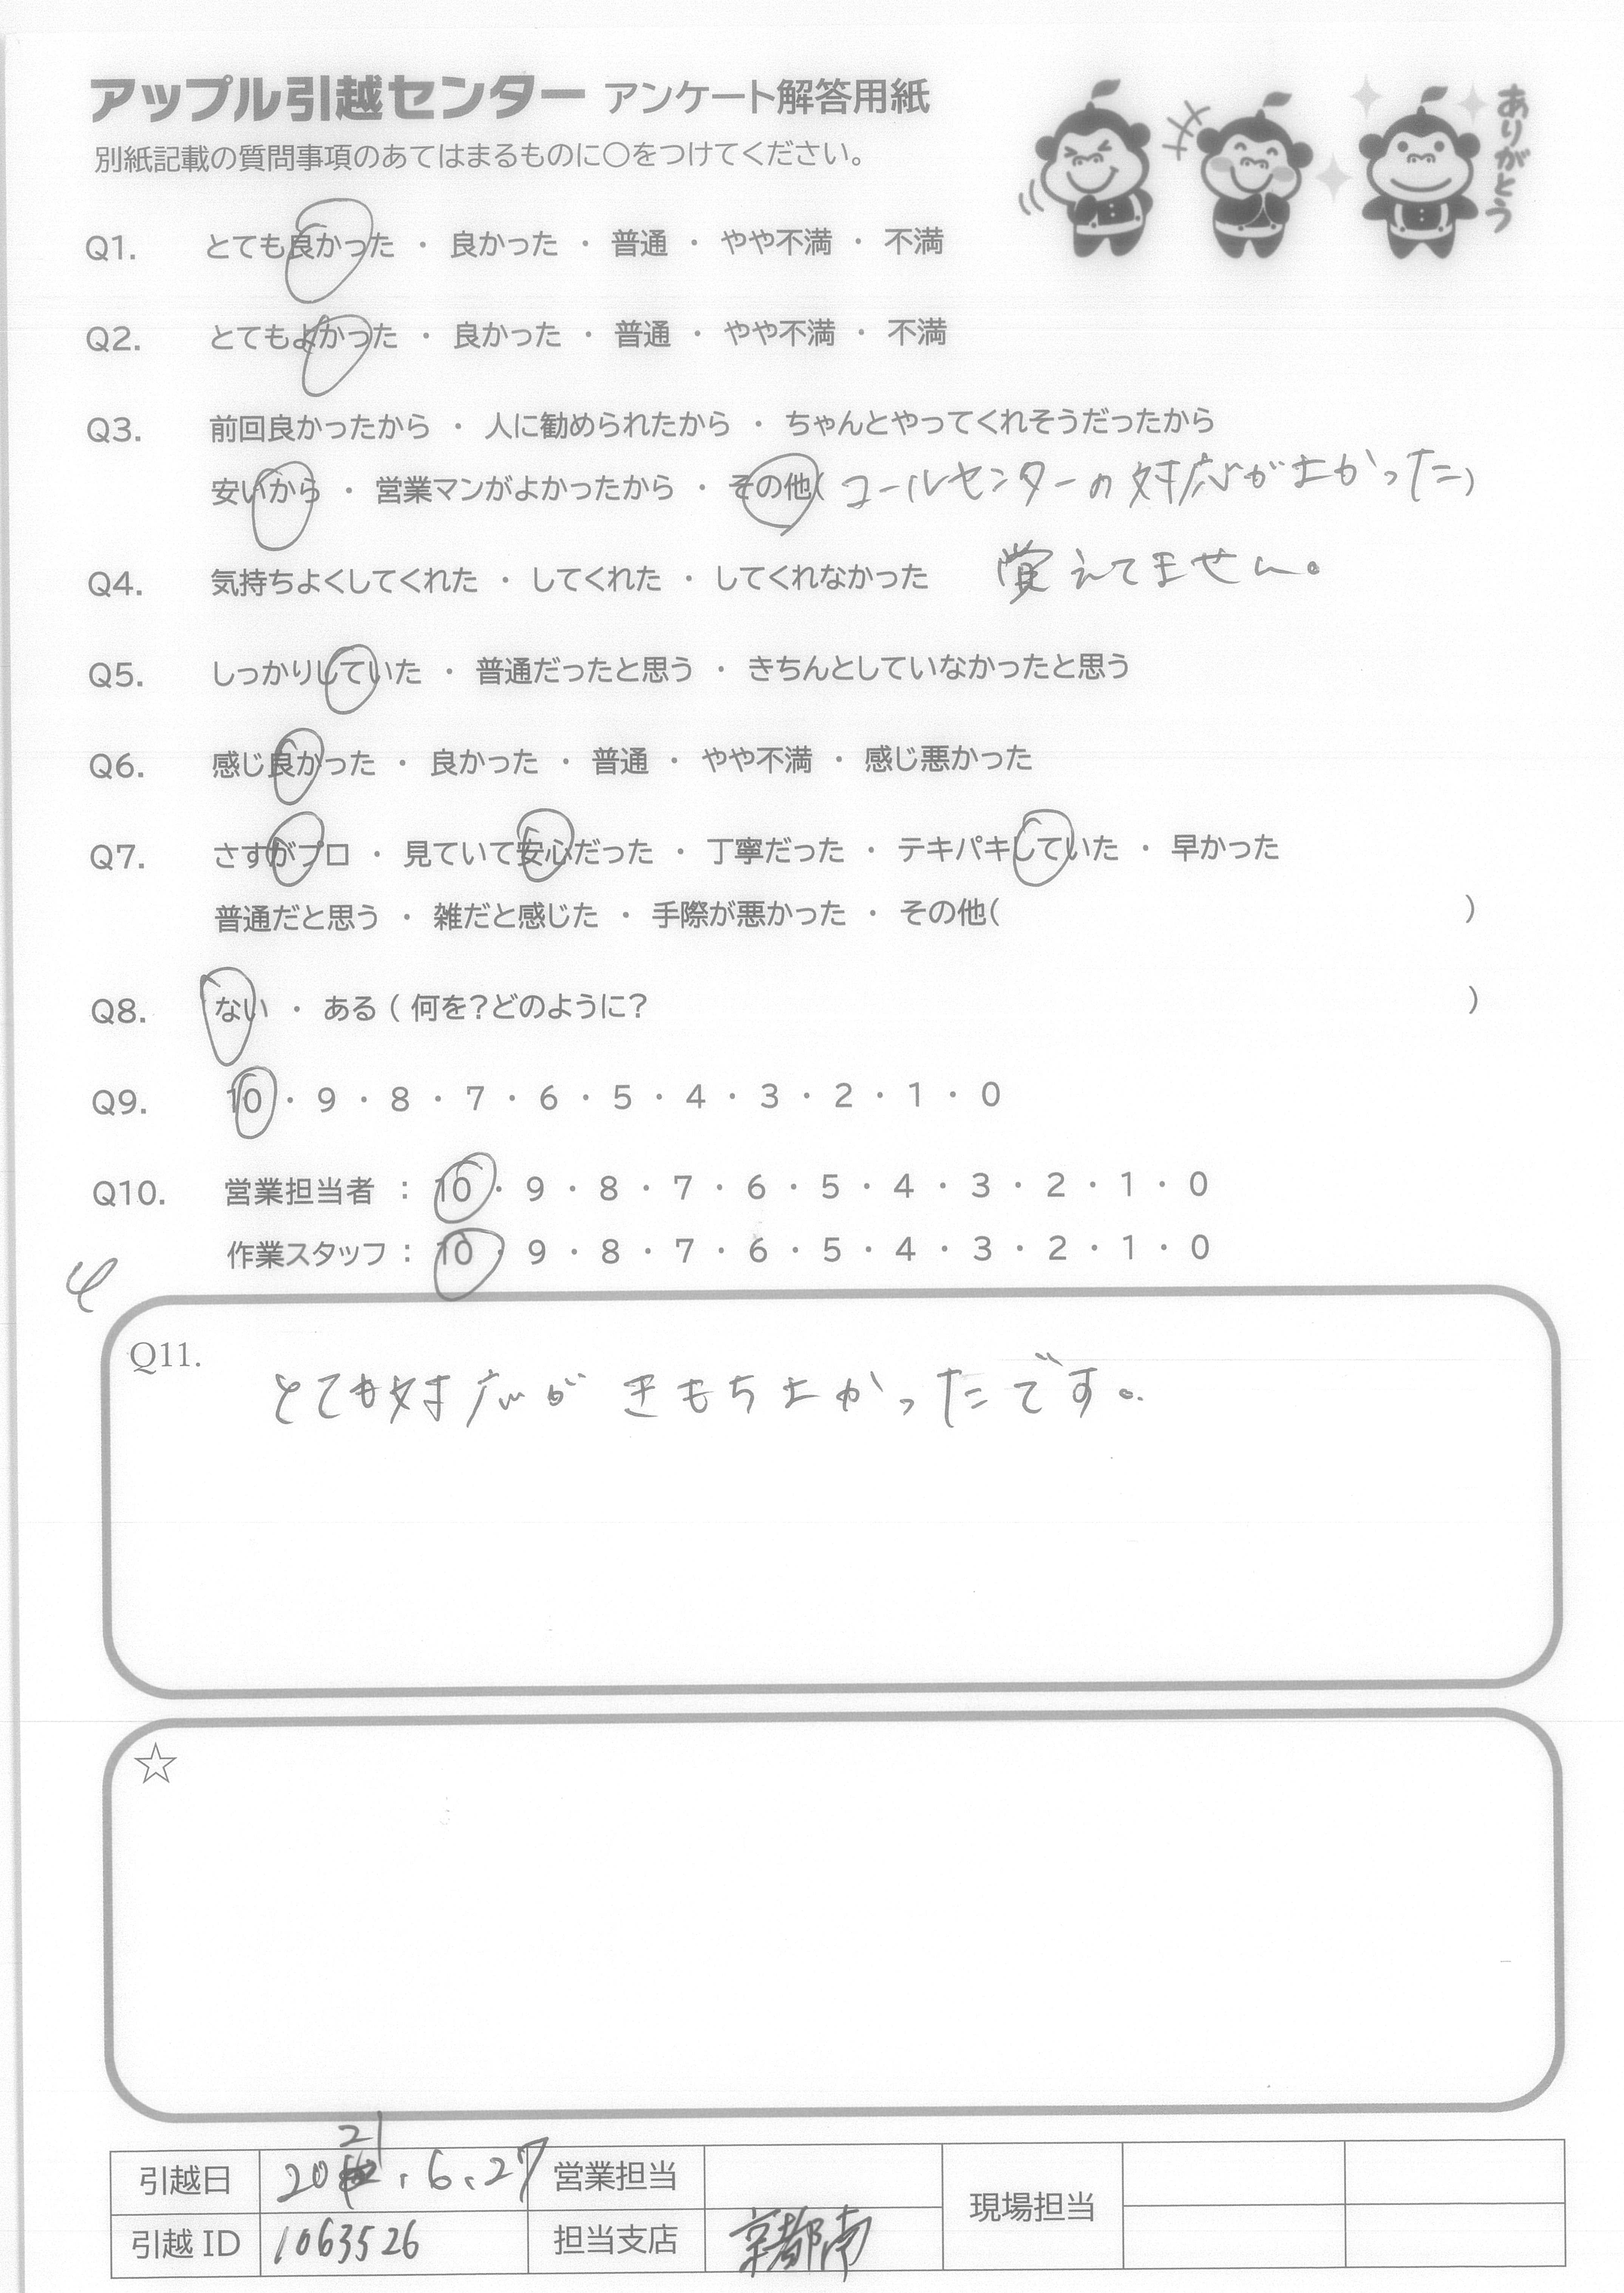 アップル引越センター アンケート解答用紙
別紙記載の質問事項のあてはまるものに〇をつけてください。
ありがとう
Q1. とても良かった ・ 良かった ・ 普通 ・ やや不満 ・ 不満
Q2. とてもよかった ・ 良かった ・ 普通 ・ やや不満 ・ 不満
Q3. 前回良かったから ・ 人に勧められたから ・ ちゃんとやってくれそうだったから
安いから ・ 営業マンがよかったから ・ その他( コールセンターの対応がよかった)
Q4. 気持ちよくしてくれた ・ してくれた ・ してくれなかった 覚えてません。
Q5. しっかりしていた ・ 普通だったと思う ・ きちんとしていなかったと思う
Q6. 感じ良かった ・ 良かった ・ 普通 ・ やや不満 ・ 感じ悪かった
Q7. さすがプロ ・ 見ていて安心だった ・ 丁寧だった ・ テキパキしていた ・ 早かった
普通だと思う ・ 雑だと感じた ・ 手際が悪かった ・ その他( )
Q8. ない ・ ある ( 何を?どのように? )
Q9. 10 ・ 9 ・ 8 ・ 7 ・ 6 ・ 5 ・ 4 ・ 3 ・ 2 ・ 1 ・ 0
Q10. 営業担当者 : 10 ・ 9 ・ 8 ・ 7 ・ 6 ・ 5 ・ 4 ・ 3 ・ 2 ・ 1 ・ 0
作業スタッフ : 10 ・ 9 ・ 8 ・ 7 ・ 6 ・ 5 ・ 4 ・ 3 ・ 2 ・ 1 ・ 0
Q11.
とても対応がきもちよかったです。
☆
引越日 2021.6.27 営業担当 現場担当
引越ID 1063526 担当支店 京都南